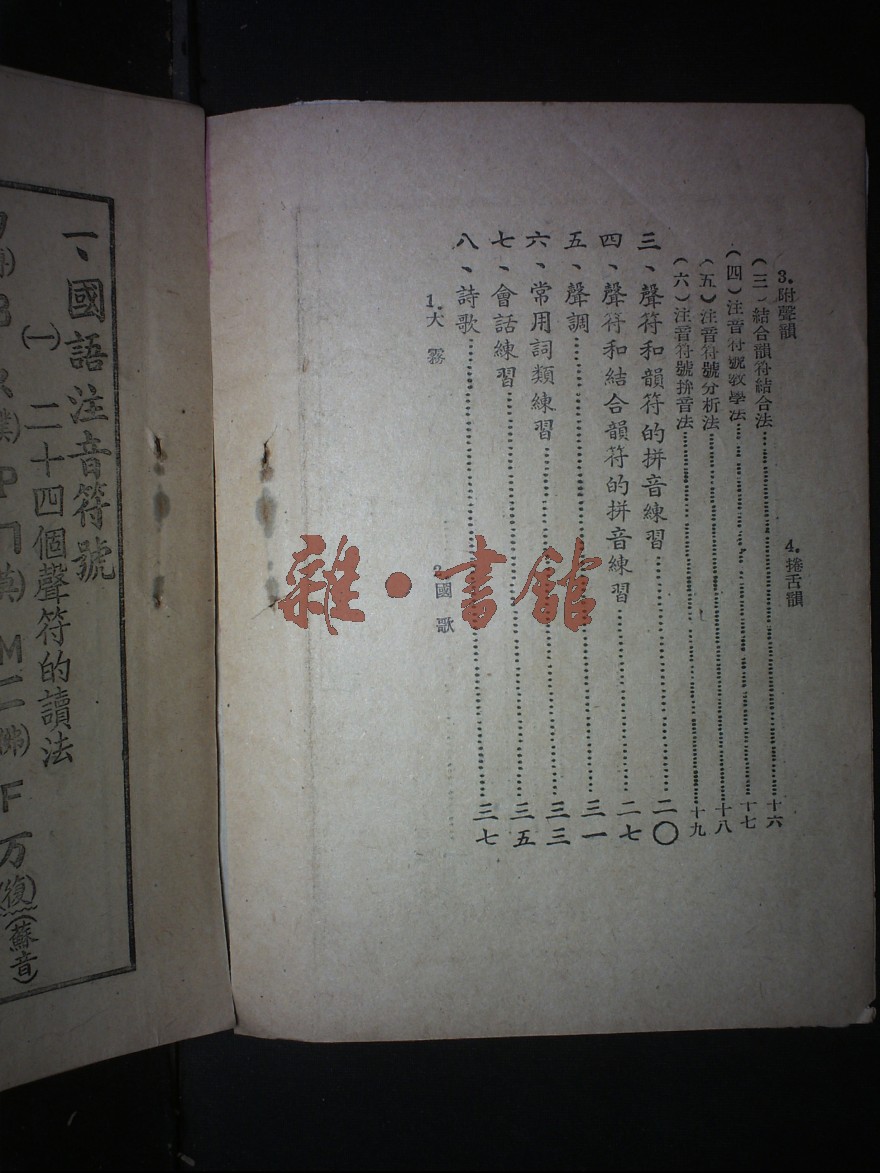 3.附聲韻 4.捲舌韻
（三）結合韻符結合法……十六
（四）注音符號教學法……十七
（五）注音符號分析法……十八
（六）注音符號拚音法……十九
三、聲符和韻符的拼音練習……二〇
四、聲符和結合韻符的拼音練習……二七
五、聲調……三一
六、常用詞類練習……三三
七、會話練習……三五
八、詩歌……三七
1.大霧 2.國歌
雜·書館
一、國語注音符號
㈠ 二十四個聲符的讀法
P ㄇ M ㄈ(佛) F 万(復)(蘇音)